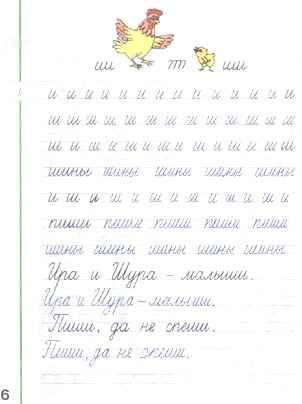 ши т ши
и и и и и и и и и и и и и
ш ш ш ш ш ш ш ш ш ш ш ш
и и ш и ш и ш и ш и ш ш
шины шины шины шины шины
и и и ш и ш и ш и ш и ш
пиши пиши пиши пиши пиши
шины шины шины шины шины
Ира и Шура - малыши.
Ира и Шура - малыши.
Пиши, да не спеши.
Пеши, да не спеши.
6